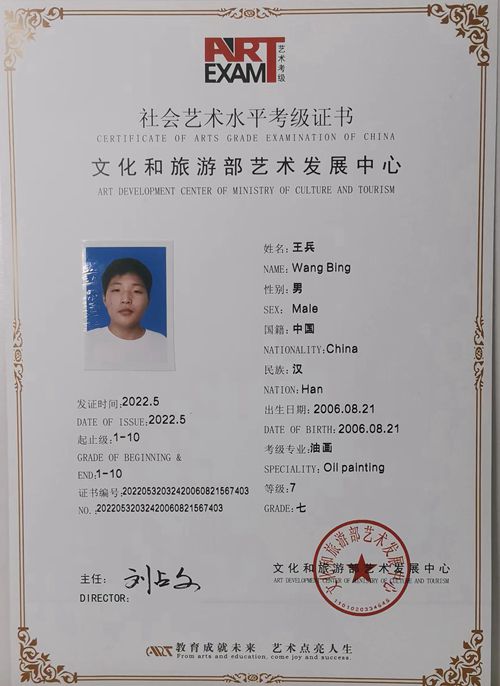 ART
EXAM
艺术考级
社会艺术水平考级证书
CERTIFICATE OF ARTS GRADE EXAMINATION OF CHINA
文化和旅游部艺术发展中心
ART DEVELOPMENT CENTER OF MINISTRY OF CULTURE AND TOURISM
姓名:王兵
NAME:Wang Bing
性别:男
SEX: Male
国籍:中国
NATIONALITY:China
民族:汉
NATION:Han
出生日期:2006.08.21
DATE OF BIRTH:2006.08.21
考级专业:油画
SPECIALITY:Oil painting
等级:7
GRADE:七
发证时间:2022.5
DATE OF ISSUE:2022.5
起止级:1-10
GRADE OF BEGINNING &
END:1-10
证书编号:20220532032420060821567403
NO.:20220532032420060821567403
主任: 刘占文
DIRECTOR:
文化和旅游部艺术发展中心
ART DEVELOPMENT CENTER OF MINISTRY OF CULTURE AND TOURISM
文化和旅游部艺术发展中心
1101020334645
ART 教育成就未来 艺术点亮人生
From arts and education, come joy and success.